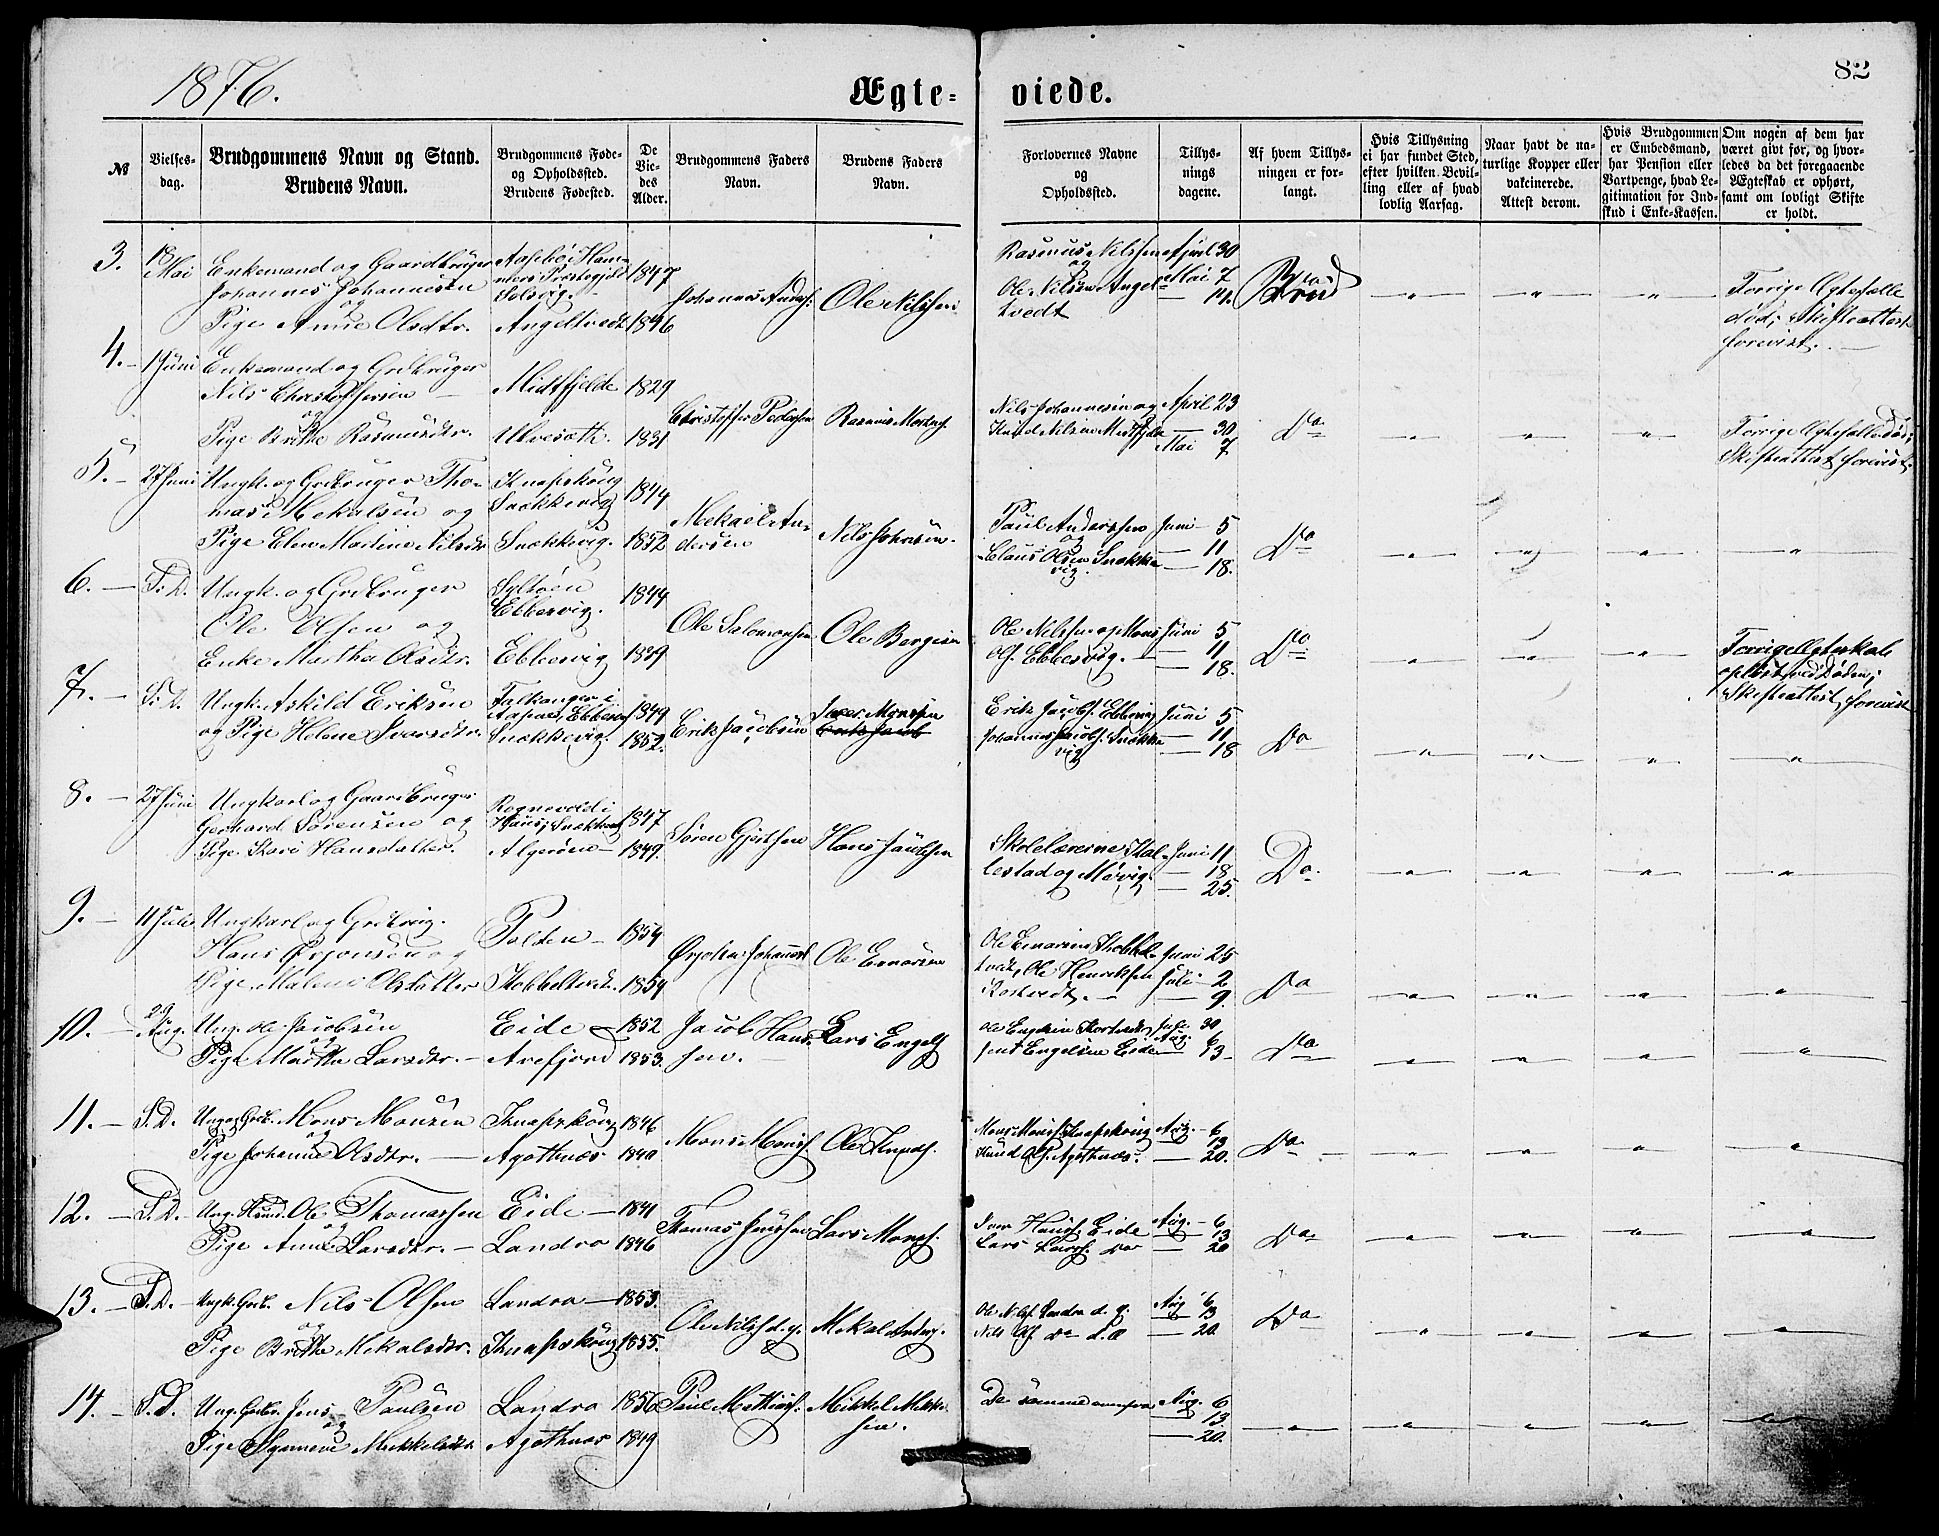 1876.
Ægte=
viede.
82
№
Vielses-
dag.
Brudgommens Navn og Stand.
Brudens Navn.
Brudgommens Føde-
og Opholdssted.
Brudens Fødested.
De
Vie-
des
Alder.
Brudgommens Faders
Navn.
Brudens Faders
Navn.
Forlovernes Navne
og
Opholdssted.
Tillys-
nings
dagene.
Af hvem Tillys-
ningen er for-
langt.
Hvis Tillysning
ei har fundet Sted,
efter hvilken Bevil-
ling eller af hvad
lovlig Aarsag.
Naar havt de na-
turlige Kopper eller
vakcinerede.
Attest derom.
Hvis Brudgommen
er Embedsmand,
har Pension eller
Vartpenge, hvad Le-
gitimation for Ind-
skud i Enke-Kassen.
Om nogen af dem har
været givt før, og hvor-
ledes da det foregaaende
Ægteskab er ophørt,
samt om lovligt Skifte
er holdt.
3. 18 Mai
Enkemand og Gaardbruger
Johannes Johannesen
og
Pige Anne Olsdtr.
Ham-
mers Præstegjeld
Solvig.
Angeltvedt
1847
1846
Johannes Anders.
Ole Nilssen
Rasmus Nilssen
og
Ole Nilsen Angel-
tvedt
April 30
Mai 7
— 14.
Forrige Ægtefælle
død; Skifteattest
forevist. —
4. — 1 Juni
Enkemand og Grdbruger
Nils Christoffersen —
og
Pige Brithe Rasmusdtr.
Midtfjelde
Ulvesæth.
1829
1831
Christoffer Pedersen
Rasmus Mortens.
Nils Johannesen og
Knud Nilsen Midtfjelde
April 23
— 30
Mai 7
Do
Forrige Ægtefælle død;
Skifteattest forevist.
5. — 27 Juni
Ungk. og Grdbruger Tho-
mas Mekalsen og
Pige Elen Martine Nilsdtr
Knapskoug
Snekkevig
Snekkevig.
1844
1852
Mekael An-
dersen
Nils Johnsen.
Paul Anderssen
og
Claus Olsen Snekke
vig.
Juni — 5
— 11
— 18.
Do
6. — S. D.
Ungk. og Grdbruger
Ole Olsen og
Enke Martha Olsdtr.
Syltøen
Ebbesvig.
Ebbesvig
1844
1839
Ole Salomonsen
Ole Børgesen
Ole Nilssen og Mons
Ols. Ebbesvig.
Juni 5
— 11
— 18.
Do
Forrige Ægteskab
opløst ved Døden;
Skifteattest forevist
7. — S. D.
Ungk. Askild Eriksen
og Pige Helene Ivarsdtr.
Falkanger i
Aasnes, Ebbesv
Snekkevig.
1849
1852.
Erik Jacobsen
Iver Monsen
Erik Jacobs. Ebbesvig
Johannes Jacobs. Snekke
vig
Juni 5
— 11
— 18
Do
8. — 27 Juni
Ungkarl og Gaardbruger
Gerhard Sørensen og
Pige Kari Hansdatter.
Rognevold i
Haus; Snekkevig
Algerøen —
1847
1849.
Søren Gjertsen
Hans Jacobsen
Skolelærerne Stal-
lestad og Møvig.
Juni 11
— 18
— 25.
Do.
9. — 11 Juli
Ungkarl og Grdbrug.
Hans Ørjansen og
Pige Malene Olsdatter
Polden —
Skobbeltvedt.
1854
1854
Ørjahn Johannes
Ole Enarsen
Ole Enarsen Skobbel-
tvedt, Ole Henriksen
Kortvedt. —
Juni 25
Juli — 2
— 9.
Do
10. — Aug.
Ung. Ole Jacobsen
og
Pige Martha Larsdtr. —
Eide —
Arefjord
1852
1853.
Jacob Hans-
sen.
Lars Engels
Ole Engelsen Kortvedt
Jens Engelsen Eide
Juli 30
Aug. 6
— 13 —
Do
11. — S. D.
Ung. og Grdb. Mons Monsen
og
Pige Johanne Olsdtr. —
Knapskoug
Agothnæs
1846
1840
Mons Monss.
Ole Knuds.
Mons Monss. Knapskoug
Knud Ols. Agothnæs.
Aug. — 6
— 13
— 20.
Do
12. — S. D. —
Ung. Husmd. Ole Thomassen
og
Pige Anne Larsdtr. —
Eide —
Landro
1841
1846
Thomas Jenssen
Lars Mons.
Iver Hanss. Eide
Lars Larss. do
Aug. — 6
— 13
— 20
Do
13. — S. D. —
Ungk. Grdb. Nils Olsen
og
Pige Brithe Mekalsdtr.
Landro —
Knapskoug
1853.
1855.
Ole Nilss. d. y.
Mekal Anders.
Ole Nilss. Landro d. y.
Nils Ols. do d. Æ
Aug 6
— 13
— 20.
Do
14. — S. D.
Ung. Grdbr. Jens Paulsen
og
Pige Synneve Mikkelsdtr
Landro
Agothnæs
1856
1849
Paul Mathias.
Mikkel Mikkel-
sen.
De samme ovenfor
Aug. 6
— 13.
— 20.